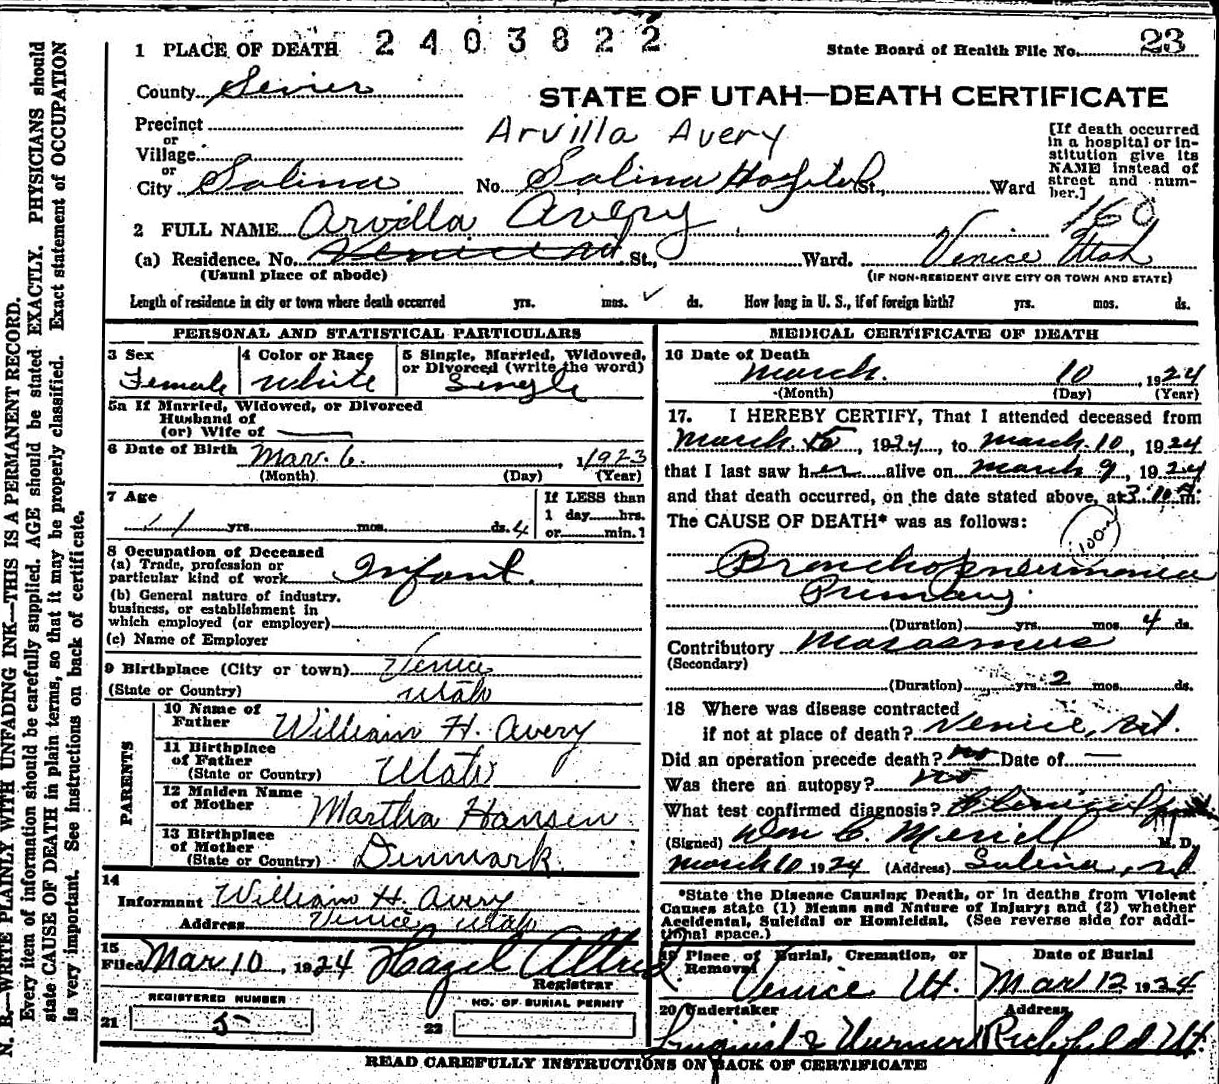 1 PLACE OF DEATH 2403822
State Board of Health File No. 23
County Sevier
STATE OF UTAH—DEATH CERTIFICATE
Precinct
or
Village
or
Arvilla Avery
City Salina No. Salina Hospital St., Ward
[If death occurred
in a hospital or in-
stitution give its
NAME instead of
street and num-
ber.]
2 FULL NAME Arvilla Avery
160
(a) Residence. No. St., Ward. Venice Utah
(Usual place of abode) (IF NON-RESIDENT GIVE CITY OR TOWN AND STATE)
Length of residence in city or town where death occurred yrs. mos. ds. How long in U. S., if of foreign birth? yrs. mos. ds.
PERSONAL AND STATISTICAL PARTICULARS
3 Sex
Female
4 Color or Race
White
5 Single, Married, Widowed,
or Divorced (write the word)
Single
5a If Married, Widowed, or Divorced
Husband of
(or) Wife of
6 Date of Birth Mar. 6. 1923
(Month) (Day) (Year)
7 Age
1 yrs. mos. ds. 4
If LESS than
1 day hrs.
or min.
8 Occupation of Deceased
(a) Trade, profession or
particular kind of work Infant.
(b) General nature of industry,
business, or establishment in
which employed (or employer)
(c) Name of Employer
9 Birthplace (City or town) Venice
(State or Country) Utah
PARENTS
10 Name of
Father William H. Avery
11 Birthplace
of Father
(State or Country) Utah
12 Maiden Name
of Mother Martha Hansen
13 Birthplace
of Mother
(State or Country) Denmark
14
Informant William H. Avery
Address Venice Utah
15
Filed Mar 10, 1924 Hazel Allred
Registrar
REGISTERED NUMBER
21 5
NO. OF BURIAL PERMIT
22
MEDICAL CERTIFICATE OF DEATH
16 Date of Death
March. 10, 1924
(Month) (Day) (Year)
17. I HEREBY CERTIFY, That I attended deceased from
March, 1924, to March. 10, 1924
that I last saw her alive on March 9, 1924
and that death occurred, on the date stated above, at m.
The CAUSE OF DEATH* was as follows:
Bronchopneumonia
Primary
(Duration) yrs. mos. 4 ds.
Contributory Marasmus
(Secondary)
(Duration) yrs. 2 mos. ds.
18 Where was disease contracted
if not at place of death? Venice, Ut.
Did an operation precede death? no Date of —
Was there an autopsy? no
What test confirmed diagnosis? Clinical
(Signed) Wm C. Merrill M. D.
March 10 1924 (Address) Salina, Ut
*State the Disease Causing Death, or in deaths from Violent
Causes state (1) Means and Nature of Injury; and (2) whether
Accidental, Suicidal or Homicidal. (See reverse side for addi-
tional space.)
19 Place of Burial, Cremation, or
Removal
Venice Ut.
Date of Burial
Mar 12, 1924
20 Undertaker
Address
Richfield Ut.
READ CAREFULLY INSTRUCTIONS ON BACK OF CERTIFICATE
N. B.—WRITE PLAINLY WITH UNFADING INK—THIS IS A PERMANENT RECORD.
Every item of information should be carefully supplied. AGE should be stated EXACTLY. PHYSICIANS should
state CAUSE OF DEATH in plain terms, so that it may be properly classified. Exact statement of OCCUPATION
is very important. See instructions on back of certificate.